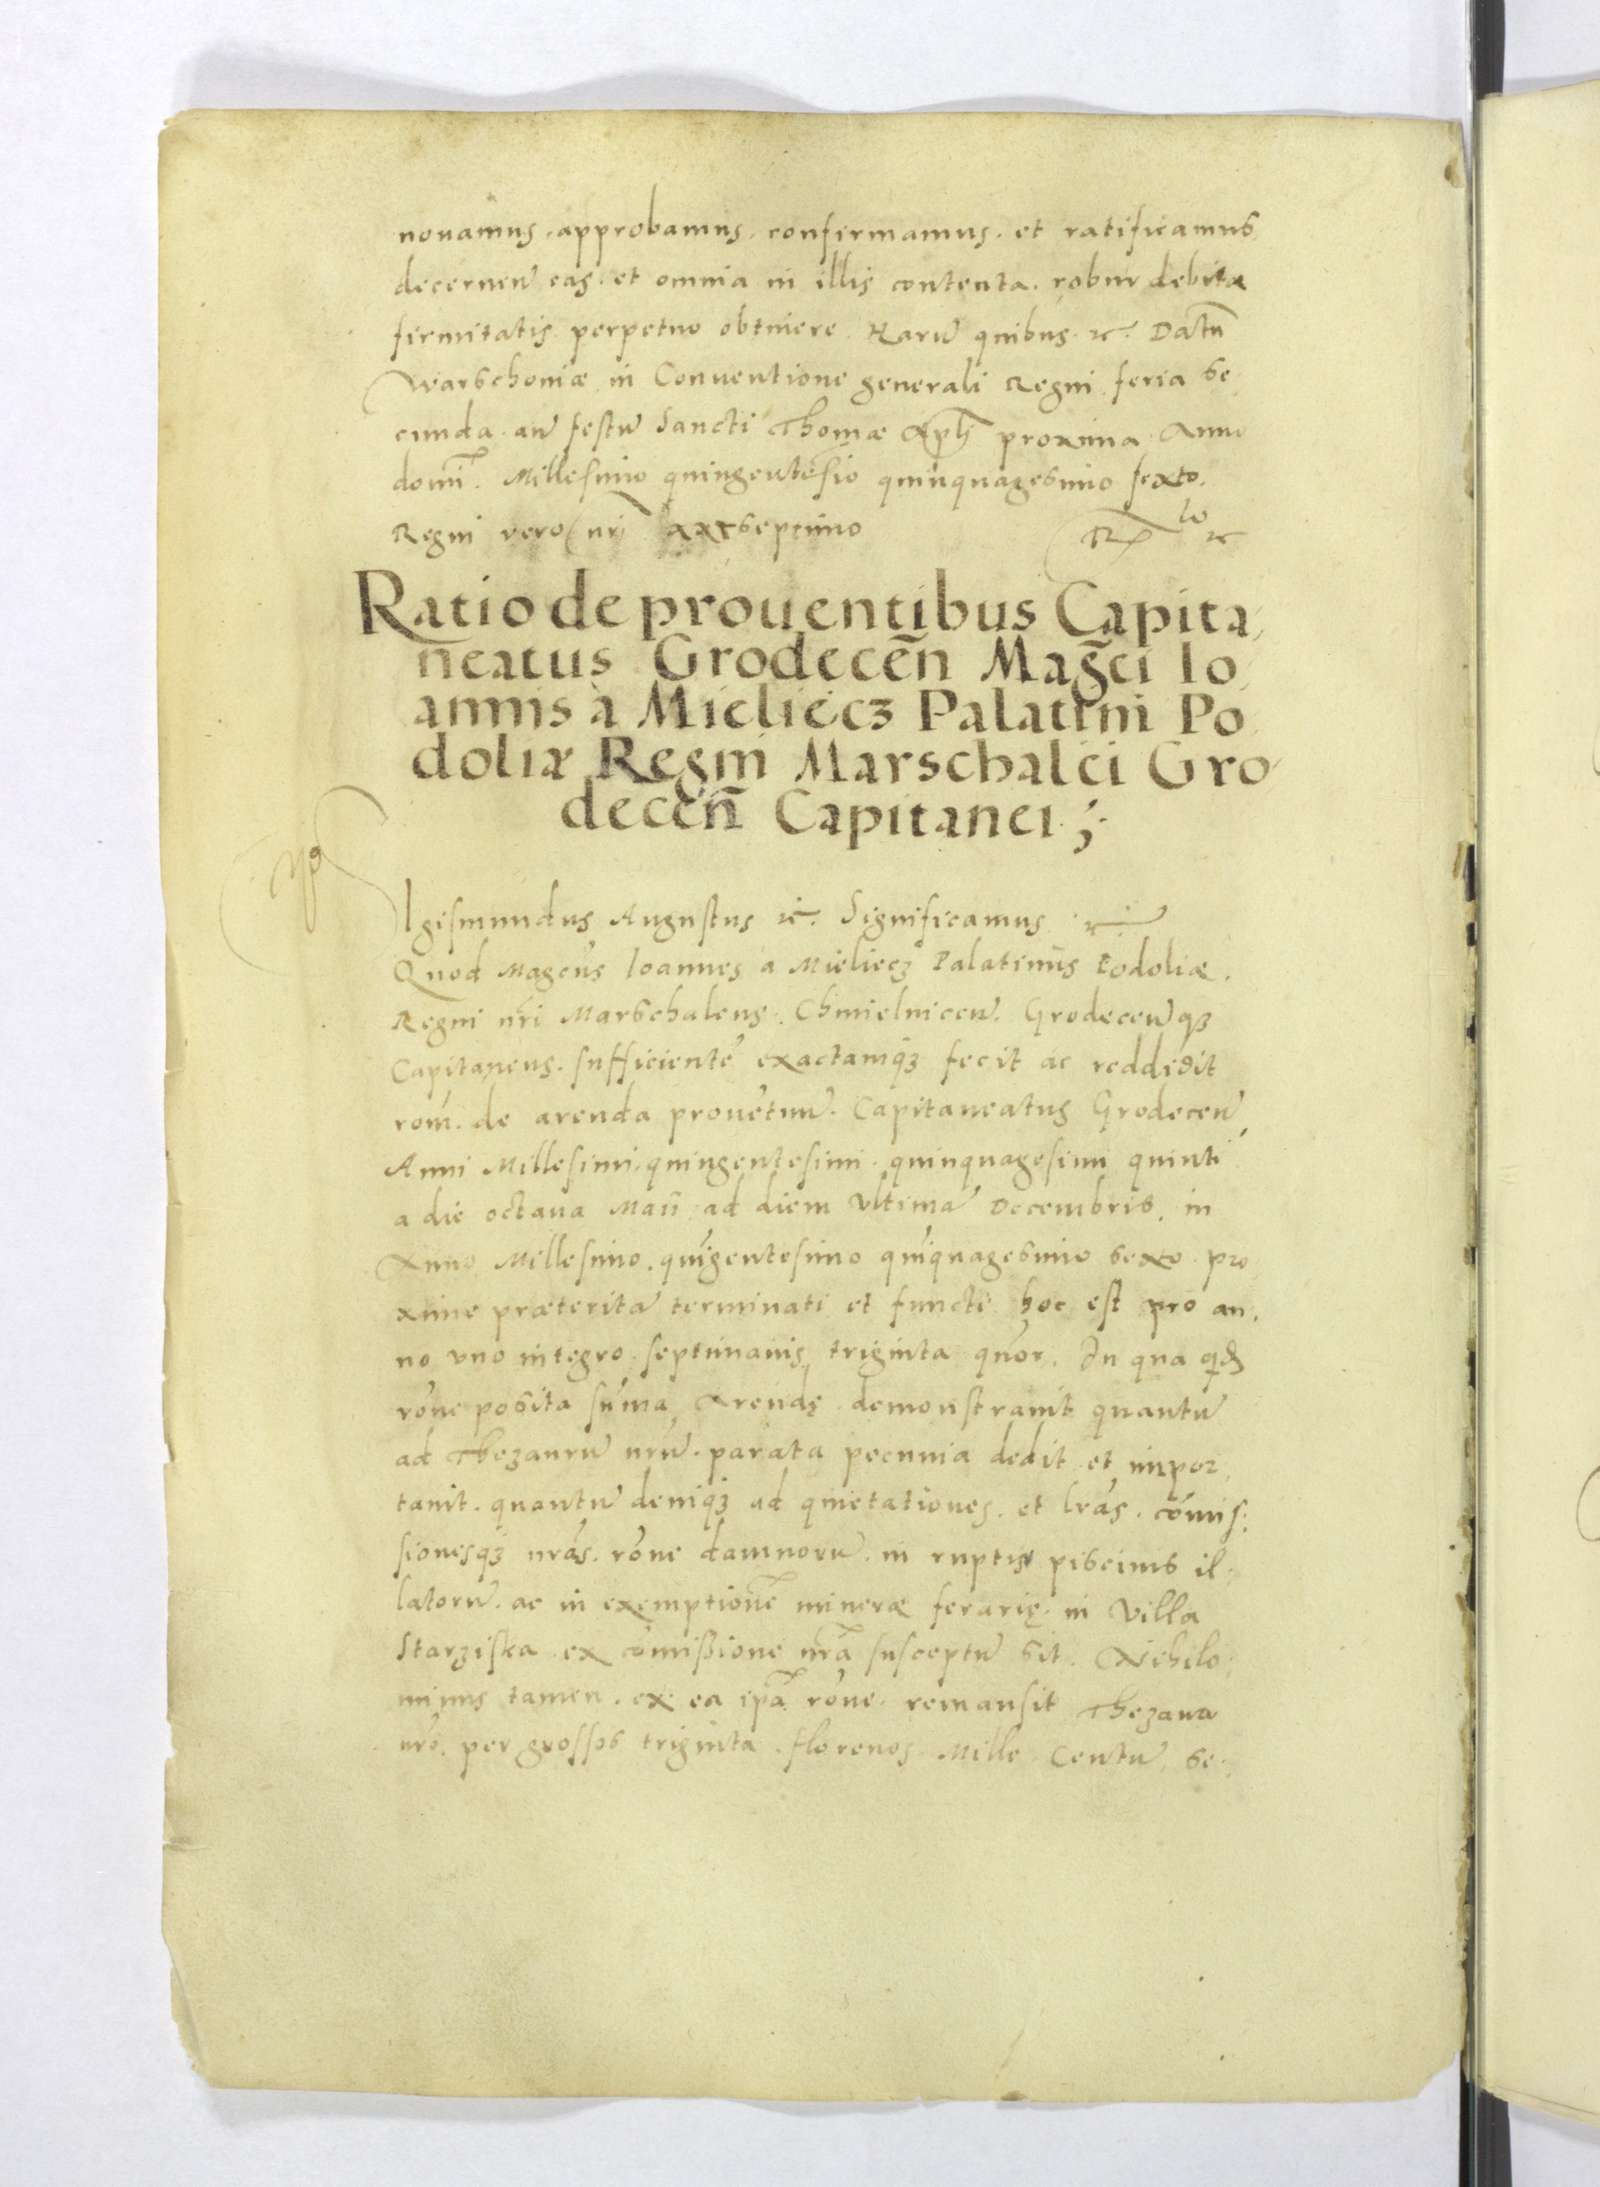 novamus . approbamus . confirmamus . et ratificamus
decernen̄ eas . et omnia in illis contenta . robur debitæ
firmitatis perpetuo obtinere . Harū quibus . &c . Datū
Warschoniæ in Conuentione generali Regni feria se,
cunda an̄ festū Sancti Thomæ Apl̄i proxima Anno
domī. Millesimo quingentesio quinquagesimo sexto.
Regni vero nrī xxvseptimo
Ratio de prouentibus Capita,
neatus Grodecen̄ Mag̃ci Io,
annis à Mieliecz Palatini Po,
doliæ Regni Marschalci Gro,
decen̄ Capitanei ;
Igismundus Augustus &c. Significamus &c
Quod Magcūs Ioannes a Mieliecz Palatinus Podoliæ.
Regni nr̄i Marschalcus . Chmielnicen̄. Grodecen̄ qȝ
Capitaneus . sufficientē exactamqȝ fecit ac reddidit
rom̄ . de arenda prouētuū . Capitaneatus Grodecen̄
Anni Millesimi . quingentesimi . quinquagesimi quinti
a die octaua Maii ad diem vltimā Decembris . in
Anno Millesimo . quīgentesimo quīquagesimo sexto . pro
xime præteritā terminati et functi hoc est pro an,
no vno integro . septimanis triginta quor̄ . In qua qd̄
rōne posita sūma Arendę demonstrauit quantū
ad Thezaurū nrū . parata pecunia dedit et impor,
tauit . quantū deniqȝ ad quietationes . et lrās . cōmis,
sionesqȝ nrās . rōne damnorū . in ruptis piscinis il,
latorū . ac in exemptionē mineræ ferarię . in Villa
Starziska ex cōmißione nrā susceptū sit . Nihilo,
minus tamen . ex ea ipā rōne . remansit Thezauro
nrō . per grossos triginta . florenos Mille Centū se,